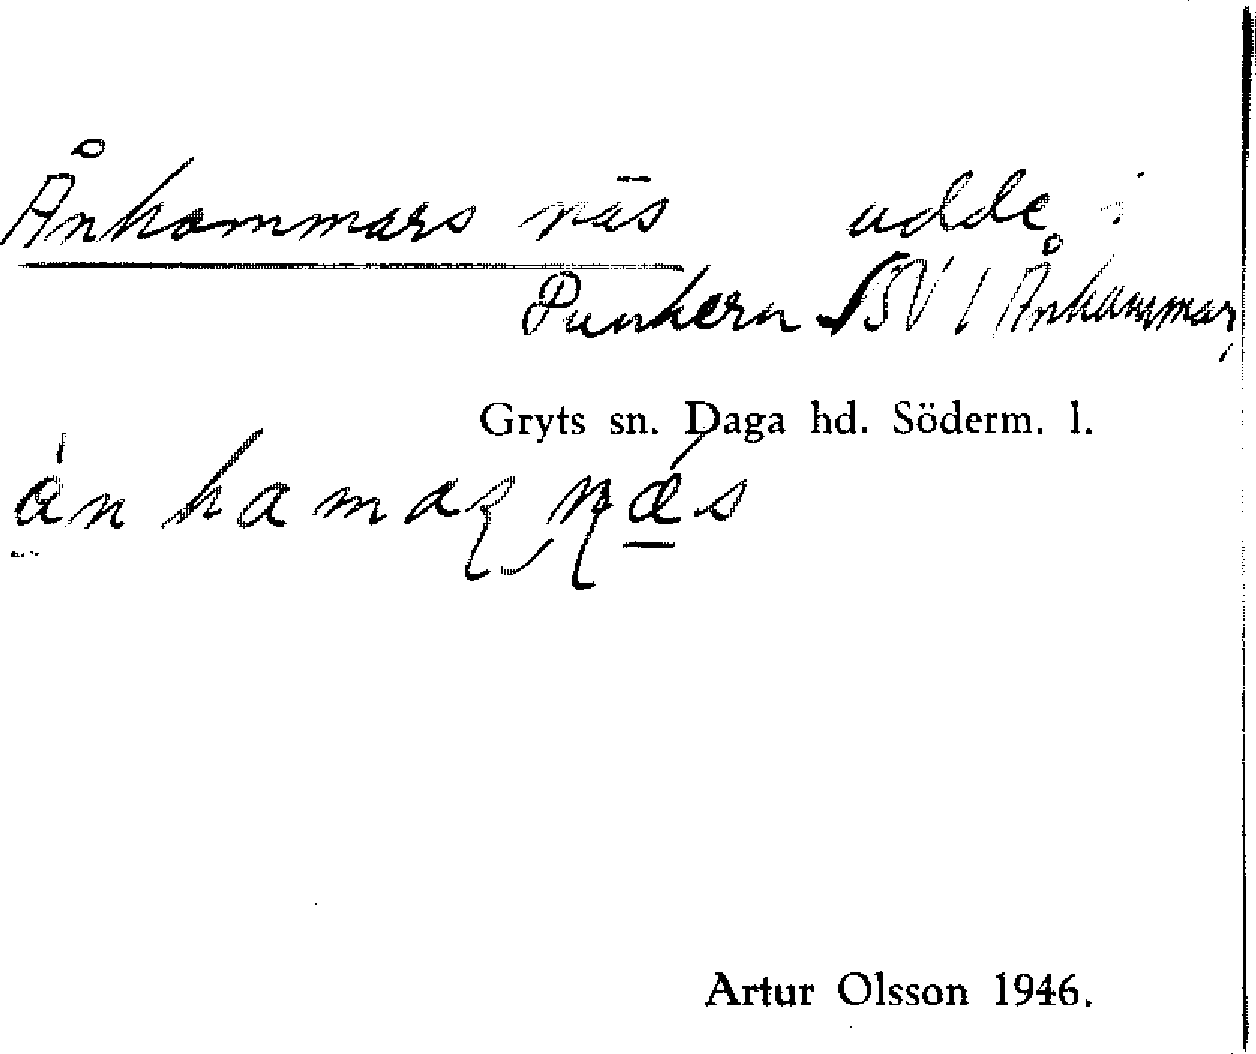 Ånhammars näs udde i
Punkern SV / Ånhammar,
Gryts sn. Daga hd. Söderm. l.
Artur Olsson 1946.